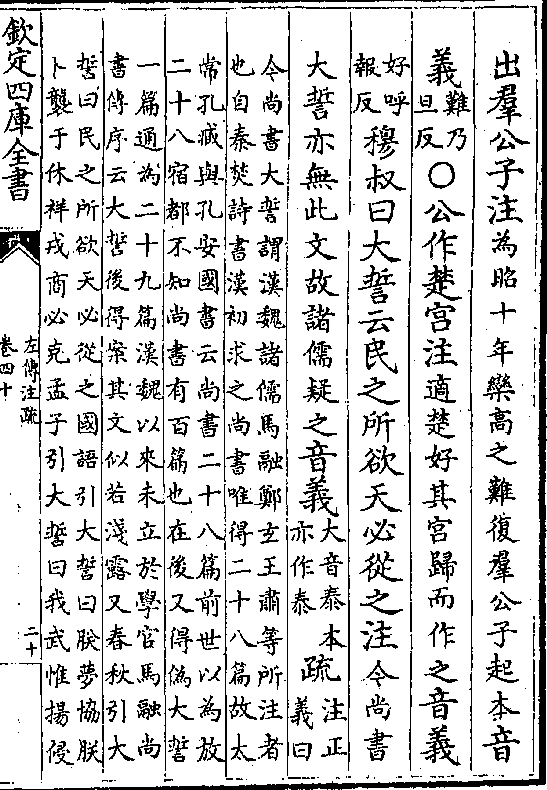 出羣公子注為昭十年欒高之難復羣公子起本音
義難乃
旦反〇公作楚宮注適楚好其宮歸而作之音義
好呼
報反穆叔曰大誓云民之所欲天必從之注今尚書
大誓亦無此文故諸儒疑之音義大音泰本
亦作泰疏注正
義曰
今尚書大誓謂漢魏諸儒馬融鄭玄王肅等所注者
也自秦焚詩書漢初求之尚書唯得二十八篇故太
常孔臧與孔安國書云尚書二十八篇前世以為放
二十八宿都不知尚書有百篇也在後又得偽大誓
一篇通為二十九篇漢魏以來未立於學官馬融尚
書傳序云大誓後得案其文似若淺露又春秋引大
誓曰民之所欲天必從之國語引大誓曰朕夢協朕
卜襲于休祥戎商必克孟子引大誓曰我武惟揚侵
欽定四庫全書
左傳注疏
卷四十
二十